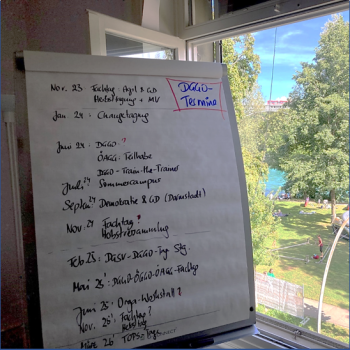 DGGO-
Termine
Nov. 23 Fachtag Agil & GD
Herbsttagung + MV
Jan 24: Changetagung
Juni 24: DGGO ?
ÖAGG: Teilhabe
DGGO - Train-the-Trainer
Juli 24 Sommercampus
Sept 24 Demokratie & GD (Darmstadt)
Nov 24 Fachtag
Herbstversammlung
Feb 25: DGSV-DGGO-Tag Stg.
Mai 25: DGGO-ÖAGG-Fachtag
Juni 25: Orga-Werkstatt?
Nov. 25 Fachtag?
Herbsttag
März 26 TOPS-Tage